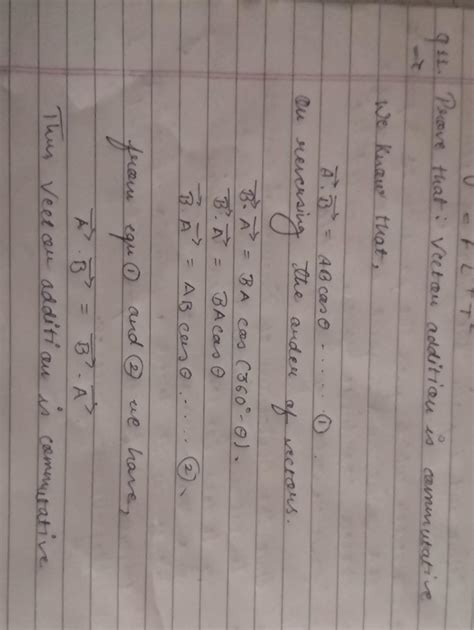 Q12. Prove that : Vector addition is commutative
→
We know that,
A⃗ · B⃗ = AB cosθ ...... ①
On reversing the order of vectors.
B⃗ · A⃗ = BA cos(360° - θ).
B⃗ · A⃗ = BA cosθ
B⃗ · A⃗ = AB cosθ ..... ②.
from equ ① and ② we have,
A⃗ · B⃗ = B⃗ · A⃗
Thus Vector addition is commutative.